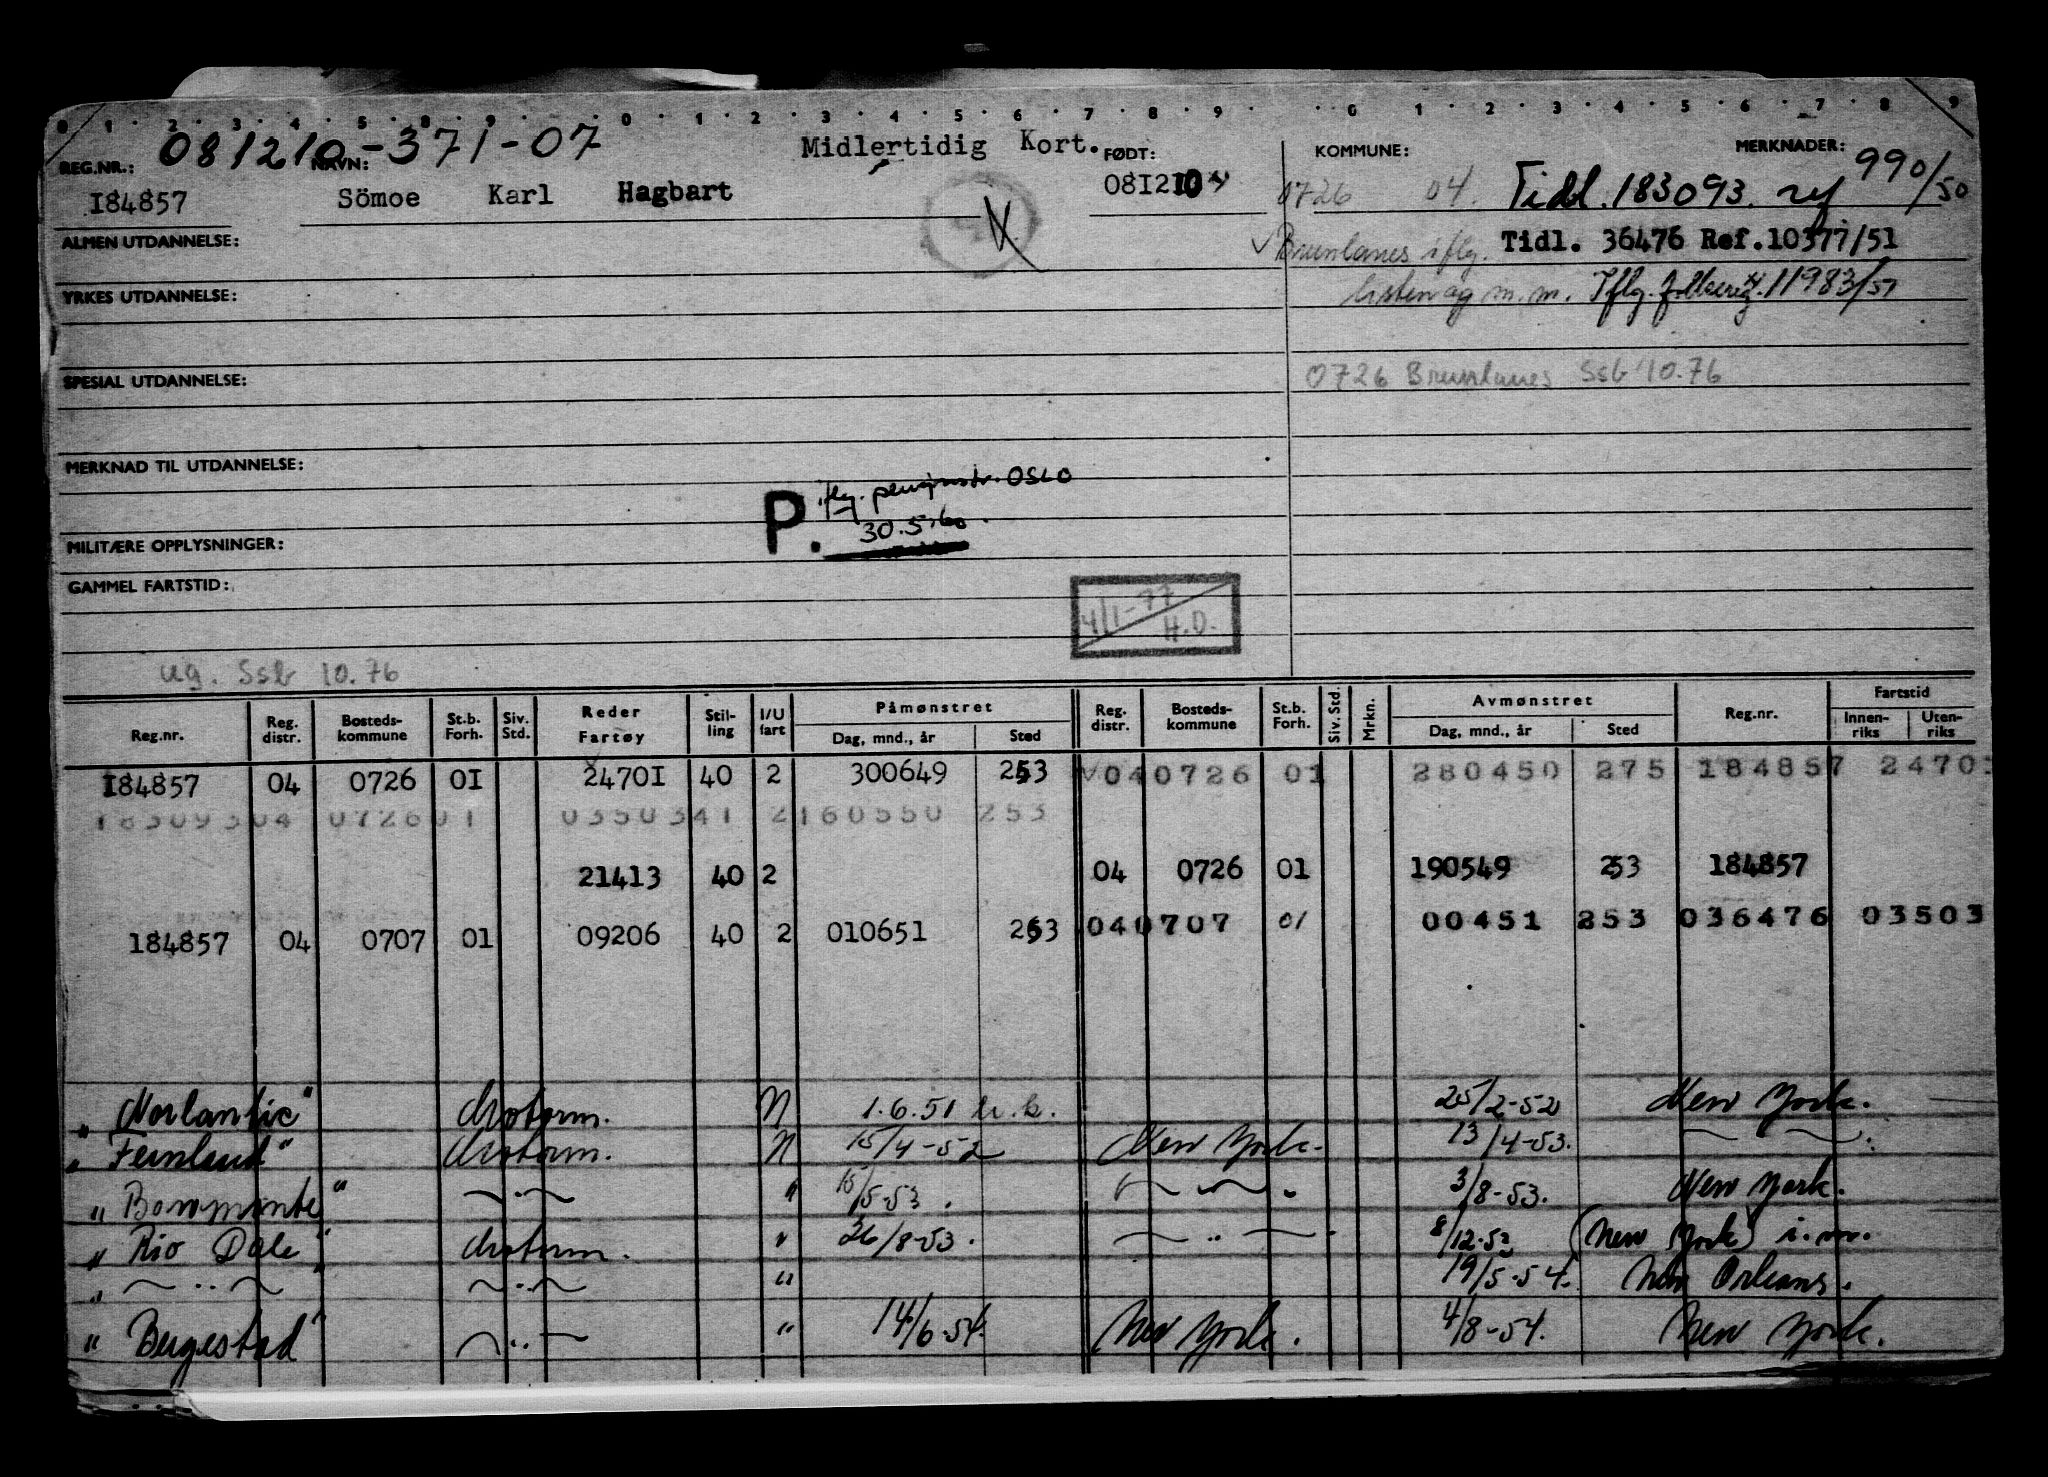 0 1 2 3 4 5 8 9 0 1 2 3 4 5 6 7 8 9 0 1 2 3 4 5 6 7 8 9
081210-371-07
Midlertidig Kort.
REG.NR.: NAVN: FØDT: KOMMUNE: MERKNADER:
I84857 Sömoe Karl Hagbart 08I210 0726 04. Tidl. 183093. ref 990/50
ALMEN UTDANNELSE: Brunlanes iflg. Tidl. 36476 Ref.10377/51
YRKES UTDANNELSE: listen og m.m. Iflg. folkereg. 11983/57
SPESIAL UTDANNELSE: 0726 Brunlanes Ssb 10.76
MERKNAD TIL UTDANNELSE:
P. iflg. pensjonstr. OSLO
30.5.60.
MILITÆRE OPPLYSNINGER:
GAMMEL FARTSTID:
4/1-77 H.D.
ug. Ssb 10.76
Reg.nr. Reg. distr. Bosteds-kommune St.b. Forh. Siv. Std. Reder Fartøy Stil-ling I/U fart Påmønstret Dag, mnd., år Sted Reg. distr. Bosteds-kommune St.b. Forh. Siv. Std. Mrkn. Avmønstret Dag, mnd., år Sted Reg.nr. Fartstid Innen-riks Uten-riks
I84857 04 0726 0I 2470I 40 2 300649 253 040726 01 280450 275 184857 2470
18309304 072601 0350341 2160550 253
21413 40 2 04 0726 01 190549 253 184857
184857 04 0707 01 09206 40 2 010651 263 040707 01 00451 253 036476 03503
"Norlantic" Motorm. N 1.6.51 25/2-52 New York.
"Fernland" Motorm. N 15/4-52 New York. 13/4-53. — " —
"Bowmonte" — " — " 15/5-53. — " — 3/8-53. New York.
"Rio Dale" Motorm. " 26/8-53. — " — 8/12-53 (New York) i.m.
" — " — — " — " 19/5-54. New Orleans.
"Bergestad" — " — " 14/6-54. New York. 4/8-54. New York.